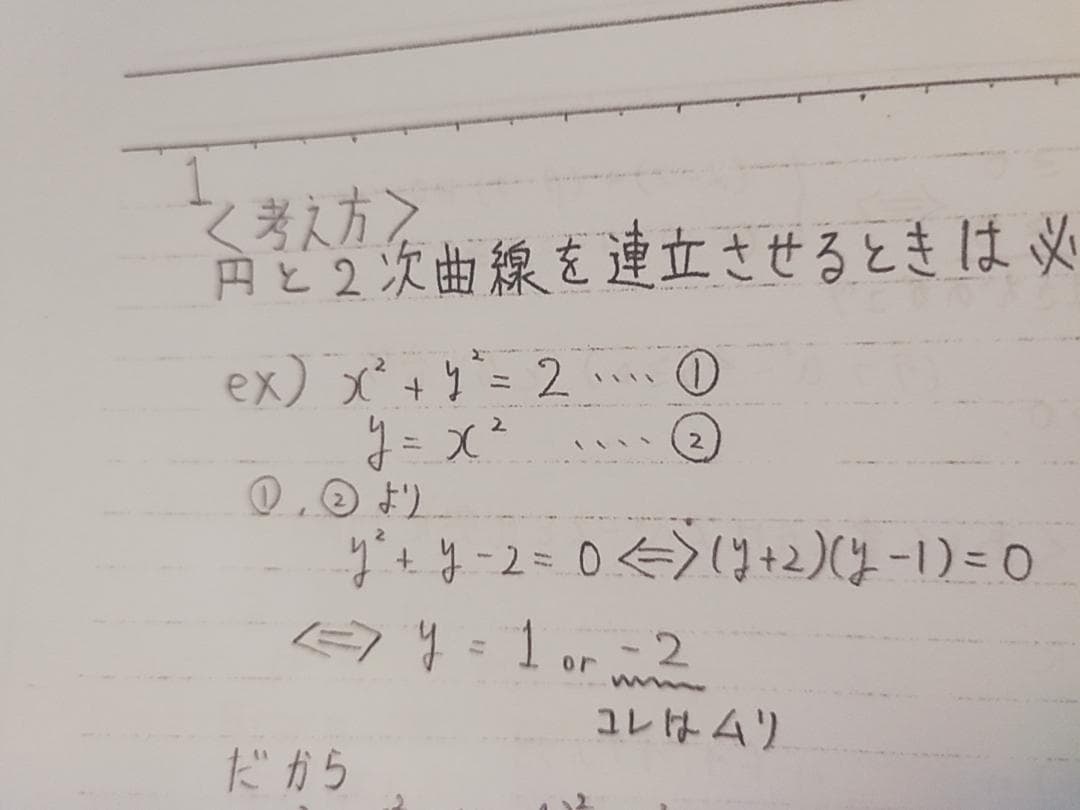 1
<考え方>
円と2次曲線を連立させるときは必
ex) x² + y² = 2 ‥‥ ①
y = x² ‥‥ ②
①, ② より
y² + y - 2 = 0 ⇔ (y+2)(y-1) = 0
⇔ y = 1 or -2
コレはムリ
だから